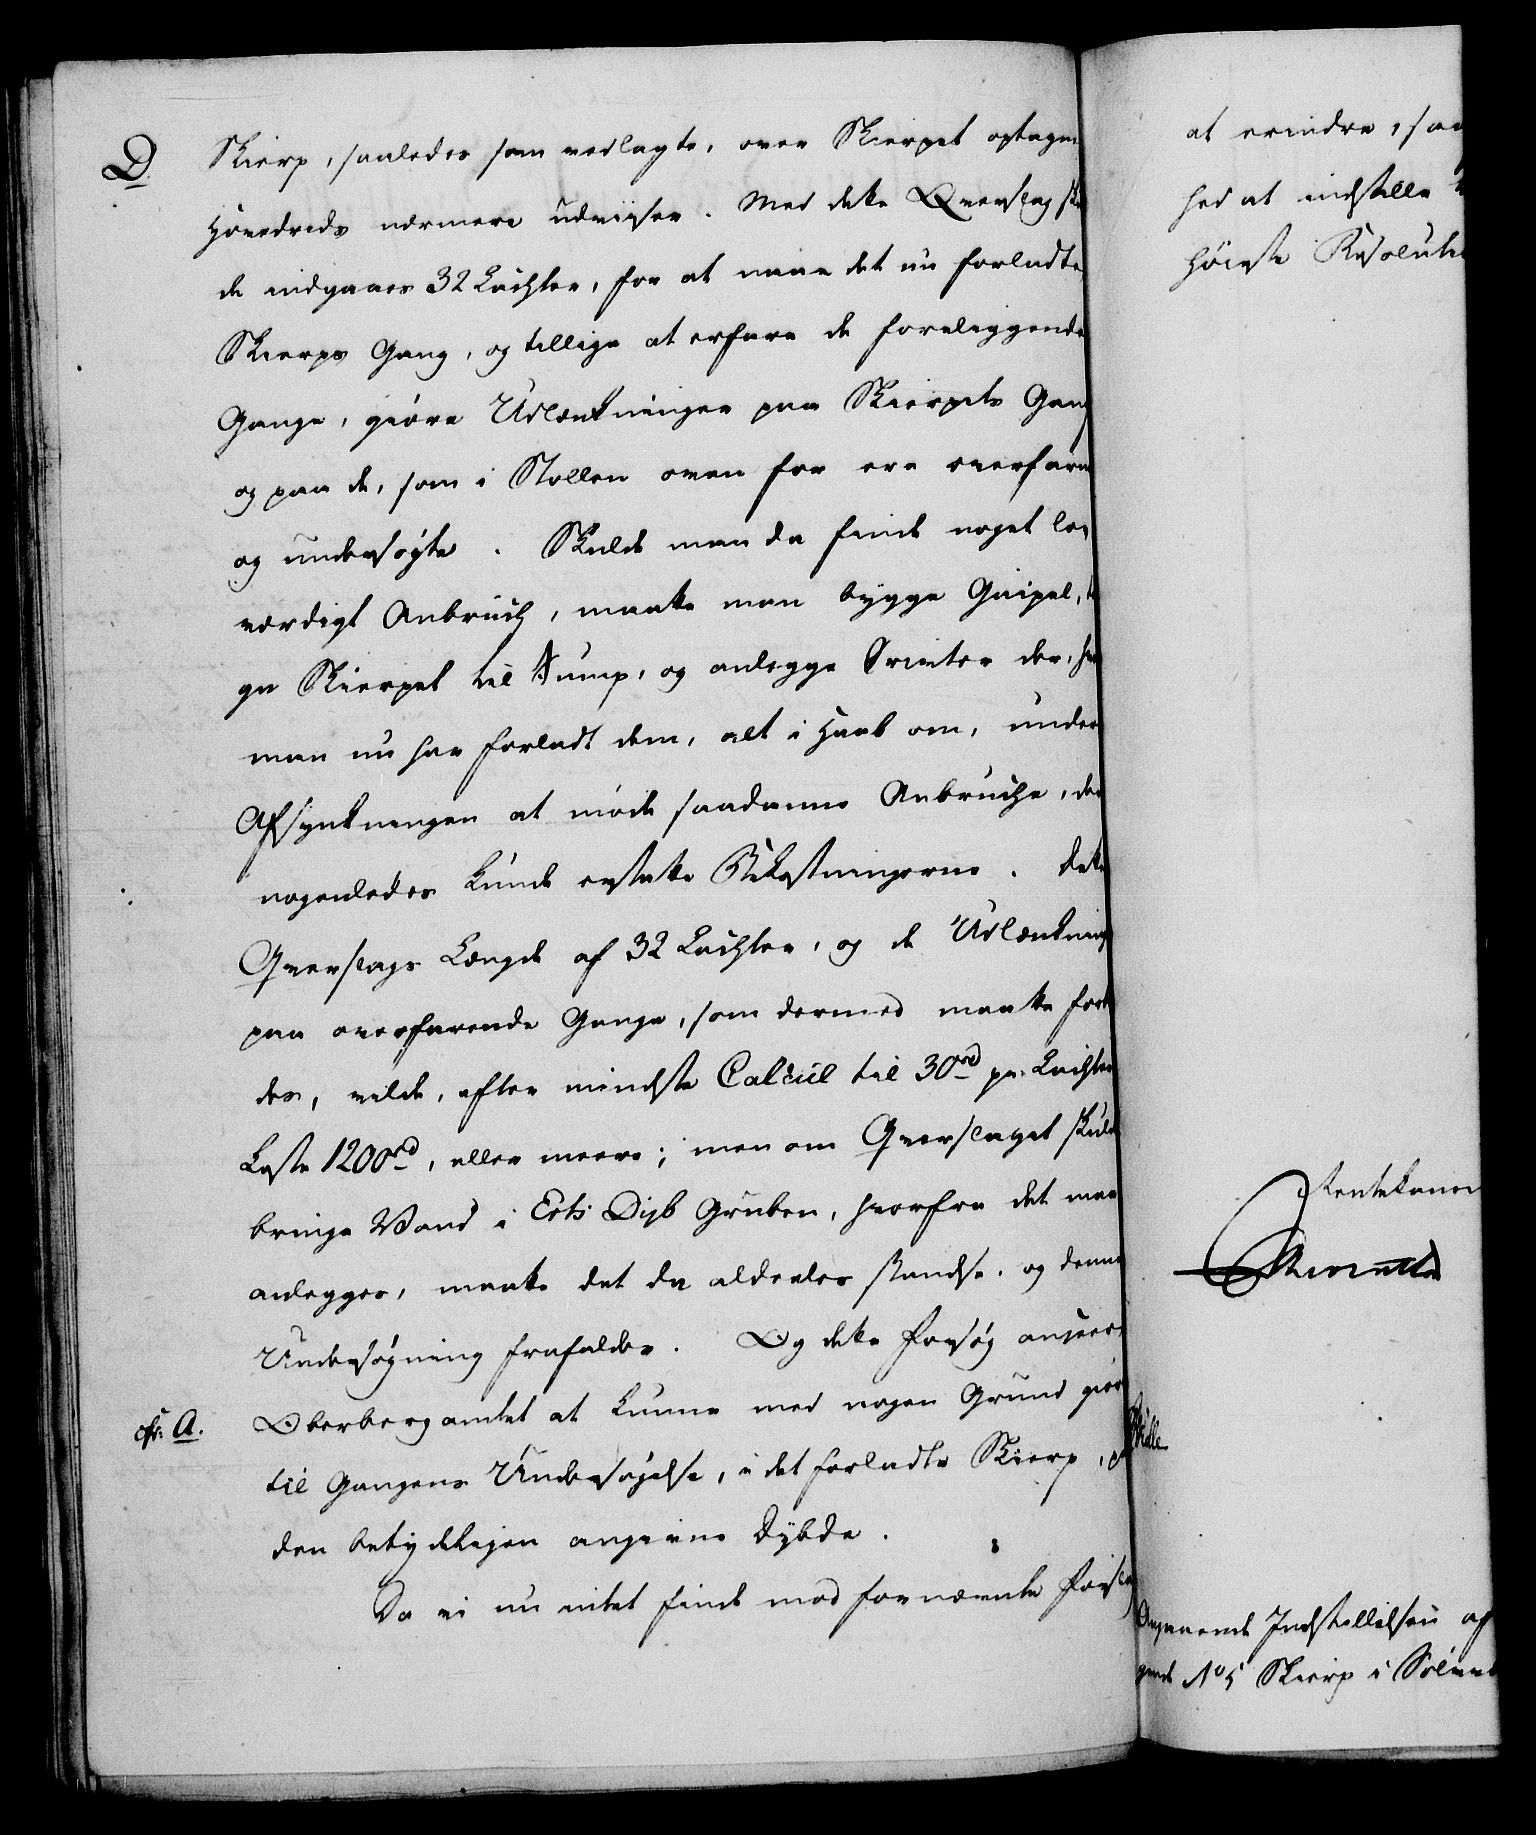 D.
Skierp, saaledes som vedlagte, over Skierpet optagne
Hovedrids nærmere udviiser. Med dette Qverslag skul
de indgaaes 32 Lachter, for at naae det nu forladte
Skierps Gang, og tillige at erfare de foreliggende
Gange, giøre Udlænkninger paa Skierpets Gang
og paa de, som i Stollen oven for ere overfarne
og undersøgte. Skulde man da finde noget
værdigt Anbruch, maatte man bygge Gaipel,
ge Skierpet til Sump, og anlægge Örinter der,
man nu har forladt dem, alt i Haab om, under
Afsynkningen at møde saadanne Anbrüche, der
nogenledes kunde erstatte Bekostningerne. Dette
Qverslags Længde af 32 Lachter, og de Udlænkning
paa overfarende Gange, som dermed maatte for
des, vilde, efter mindste Calcül til 30rd pr. Lachter
koste 1200rd, eller meere; men om Qverslaget skulde
bringe Vand i Erts Dyb Gruben, hvorfra det maae
anlægges, maatte det da aldeeles standse, og denne
Undersøgning frafaldes. Og dette Forsøg anseer
cfr: A.
Oberbergamtet at kunne med nogen Grund giøres
til Gangens Undersøgelse, i det forladte Skierp, p
den betydeligen angivne Dybde.
Da vi nu intet finde mod fornævnte Forslag
at erindre, saa
hed at indstille
høieste Resoluti
Rentekamm
Angaaende Indstillelsen af
gende No 5 Skierp i